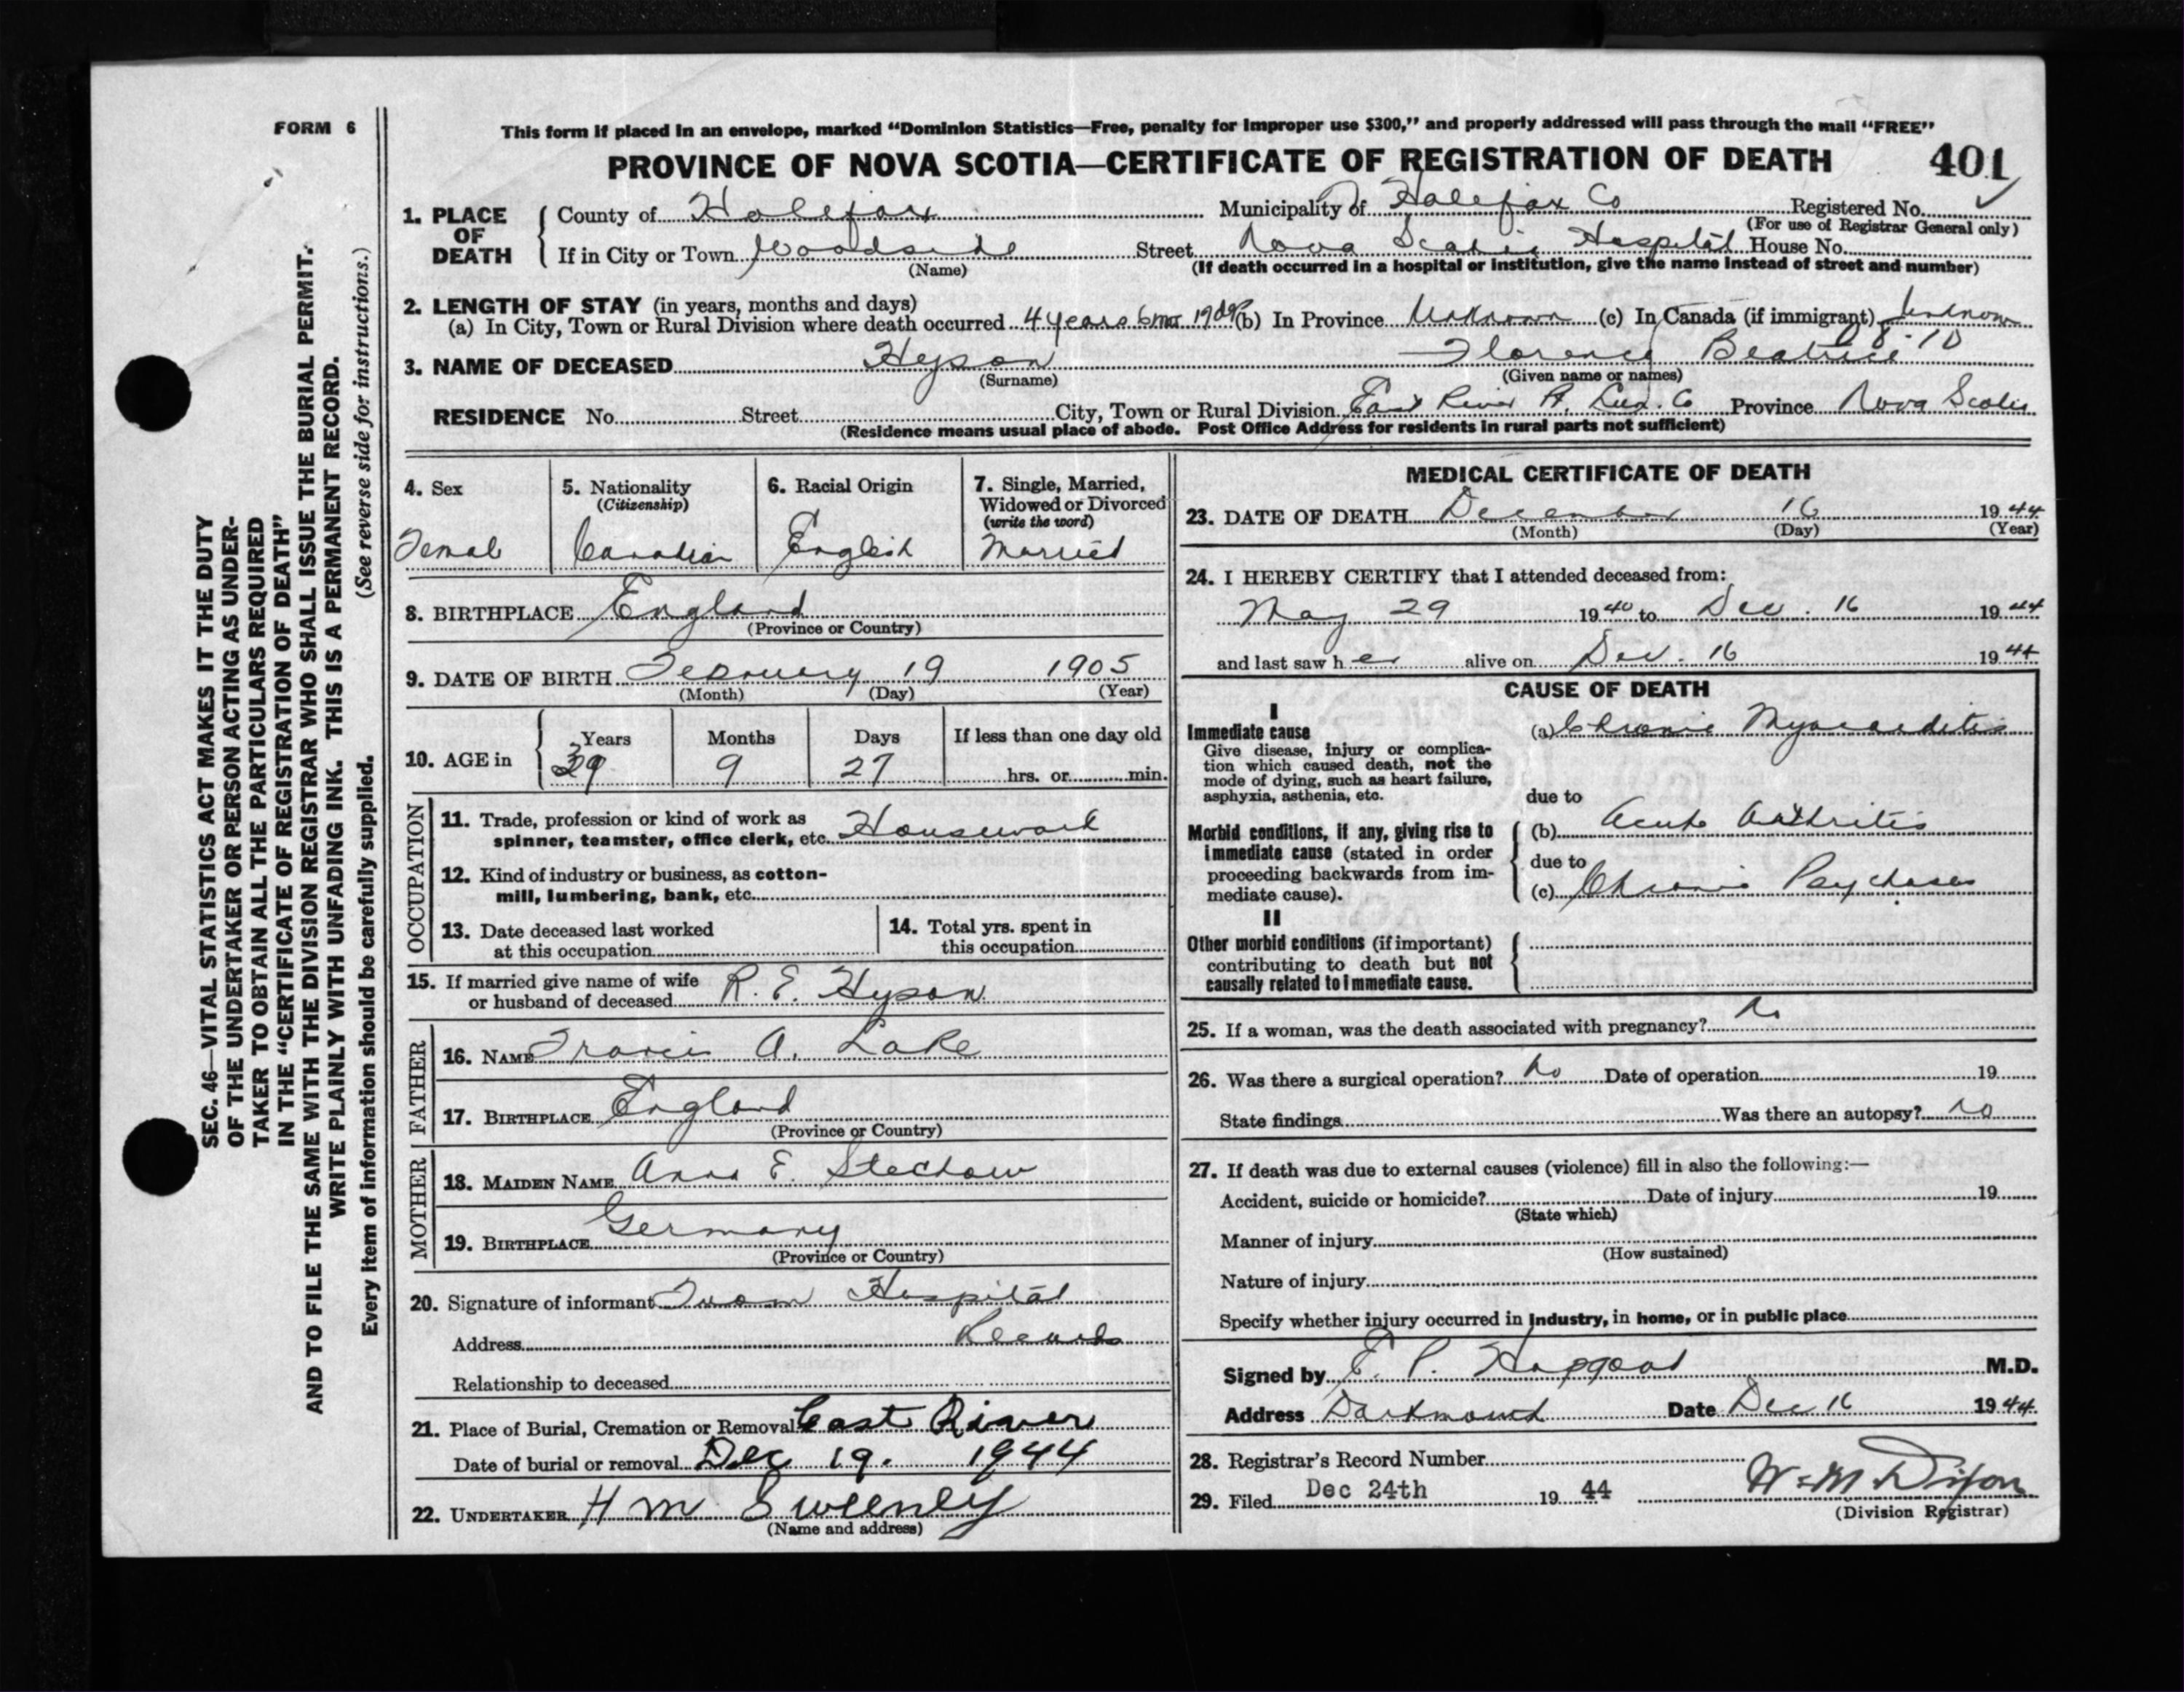 FORM 6
This form if placed in an envelope, marked "Dominion Statistics—Free, penalty for improper use $300," and properly addressed will pass through the mail "FREE"
PROVINCE OF NOVA SCOTIA—CERTIFICATE OF REGISTRATION OF DEATH 401
1. PLACE OF DEATH County of Halifax Municipality of Halifax Co Registered No.
(For use of Registrar General only)
If in City or Town Woodside Street Nova Scotia Hospital House No.
(Name) (If death occurred in a hospital or institution, give the name instead of street and number)
2. LENGTH OF STAY (in years, months and days)
(a) In City, Town or Rural Division where death occurred 4 years 6 mo 19 ds (b) In Province Unknown (c) In Canada (if immigrant) Unknown
3. NAME OF DECEASED Hyson Florence Beatrice
(Surname) (Given name or names)
RESIDENCE No. Street City, Town or Rural Division East River Lun. Co Province Nova Scotia
(Residence means usual place of abode. Post Office Address for residents in rural parts not sufficient)
4. Sex Female
5. Nationality (Citizenship) Canadian
6. Racial Origin English
7. Single, Married, Widowed or Divorced (write the word) Married
8. BIRTHPLACE England
(Province or Country)
9. DATE OF BIRTH February 19 1905
(Month) (Day) (Year)
10. AGE in Years 39 Months 9 Days 27 If less than one day old hrs. or min.
OCCUPATION
11. Trade, profession or kind of work as
spinner, teamster, office clerk, etc. Housework
12. Kind of industry or business, as cotton-
mill, lumbering, bank, etc.
13. Date deceased last worked
at this occupation
14. Total yrs. spent in
this occupation
15. If married give name of wife
or husband of deceased R. E. Hyson
FATHER
16. NAME Francis A. Lake
17. BIRTHPLACE England
(Province or Country)
MOTHER
18. MAIDEN NAME Anna E. Stechow
19. BIRTHPLACE Germany
(Province or Country)
20. Signature of informant From Hospital
Address Records
Relationship to deceased
21. Place of Burial, Cremation or Removal East River
Date of burial or removal Dec 19. 1944
22. UNDERTAKER H M Sweenley
(Name and address)
MEDICAL CERTIFICATE OF DEATH
23. DATE OF DEATH December 16 1944
(Month) (Day) (Year)
24. I HEREBY CERTIFY that I attended deceased from:
May 29 1940 to Dec. 16 1944
and last saw her alive on Dec. 16 1944
CAUSE OF DEATH
I
Immediate cause (a) Chronic Myocarditis
Give disease, injury or complica-
tion which caused death, not the
mode of dying, such as heart failure,
asphyxia, asthenia, etc.
due to
Morbid conditions, if any, giving rise to (b) Acute Arthritis
immediate cause (stated in order
proceeding backwards from im-
mediate cause).
due to
(c) Chronic Psychoses
II
Other morbid conditions (if important)
contributing to death but not
causally related to immediate cause.
25. If a woman, was the death associated with pregnancy? No
26. Was there a surgical operation? No Date of operation 19
State findings Was there an autopsy? No
27. If death was due to external causes (violence) fill in also the following:—
Accident, suicide or homicide? Date of injury 19
(State which)
Manner of injury
(How sustained)
Nature of injury
Specify whether injury occurred in industry, in home, or in public place
Signed by E. P. Hapgood M.D.
Address Dartmouth Date Dec 16 1944
28. Registrar's Record Number
29. Filed Dec 24th 19 44 W M Dixon
(Division Registrar)
SEC. 46—VITAL STATISTICS ACT MAKES IT THE DUTY
OF THE UNDERTAKER OR PERSON ACTING AS UNDER-
TAKER TO OBTAIN ALL THE PARTICULARS REQUIRED
IN THE "CERTIFICATE OF REGISTRATION OF DEATH"
AND TO FILE THE SAME WITH THE DIVISION REGISTRAR WHO SHALL ISSUE THE BURIAL PERMIT.
WRITE PLAINLY WITH UNFADING INK. THIS IS A PERMANENT RECORD.
Every item of information should be carefully supplied. (See reverse side for instructions.)